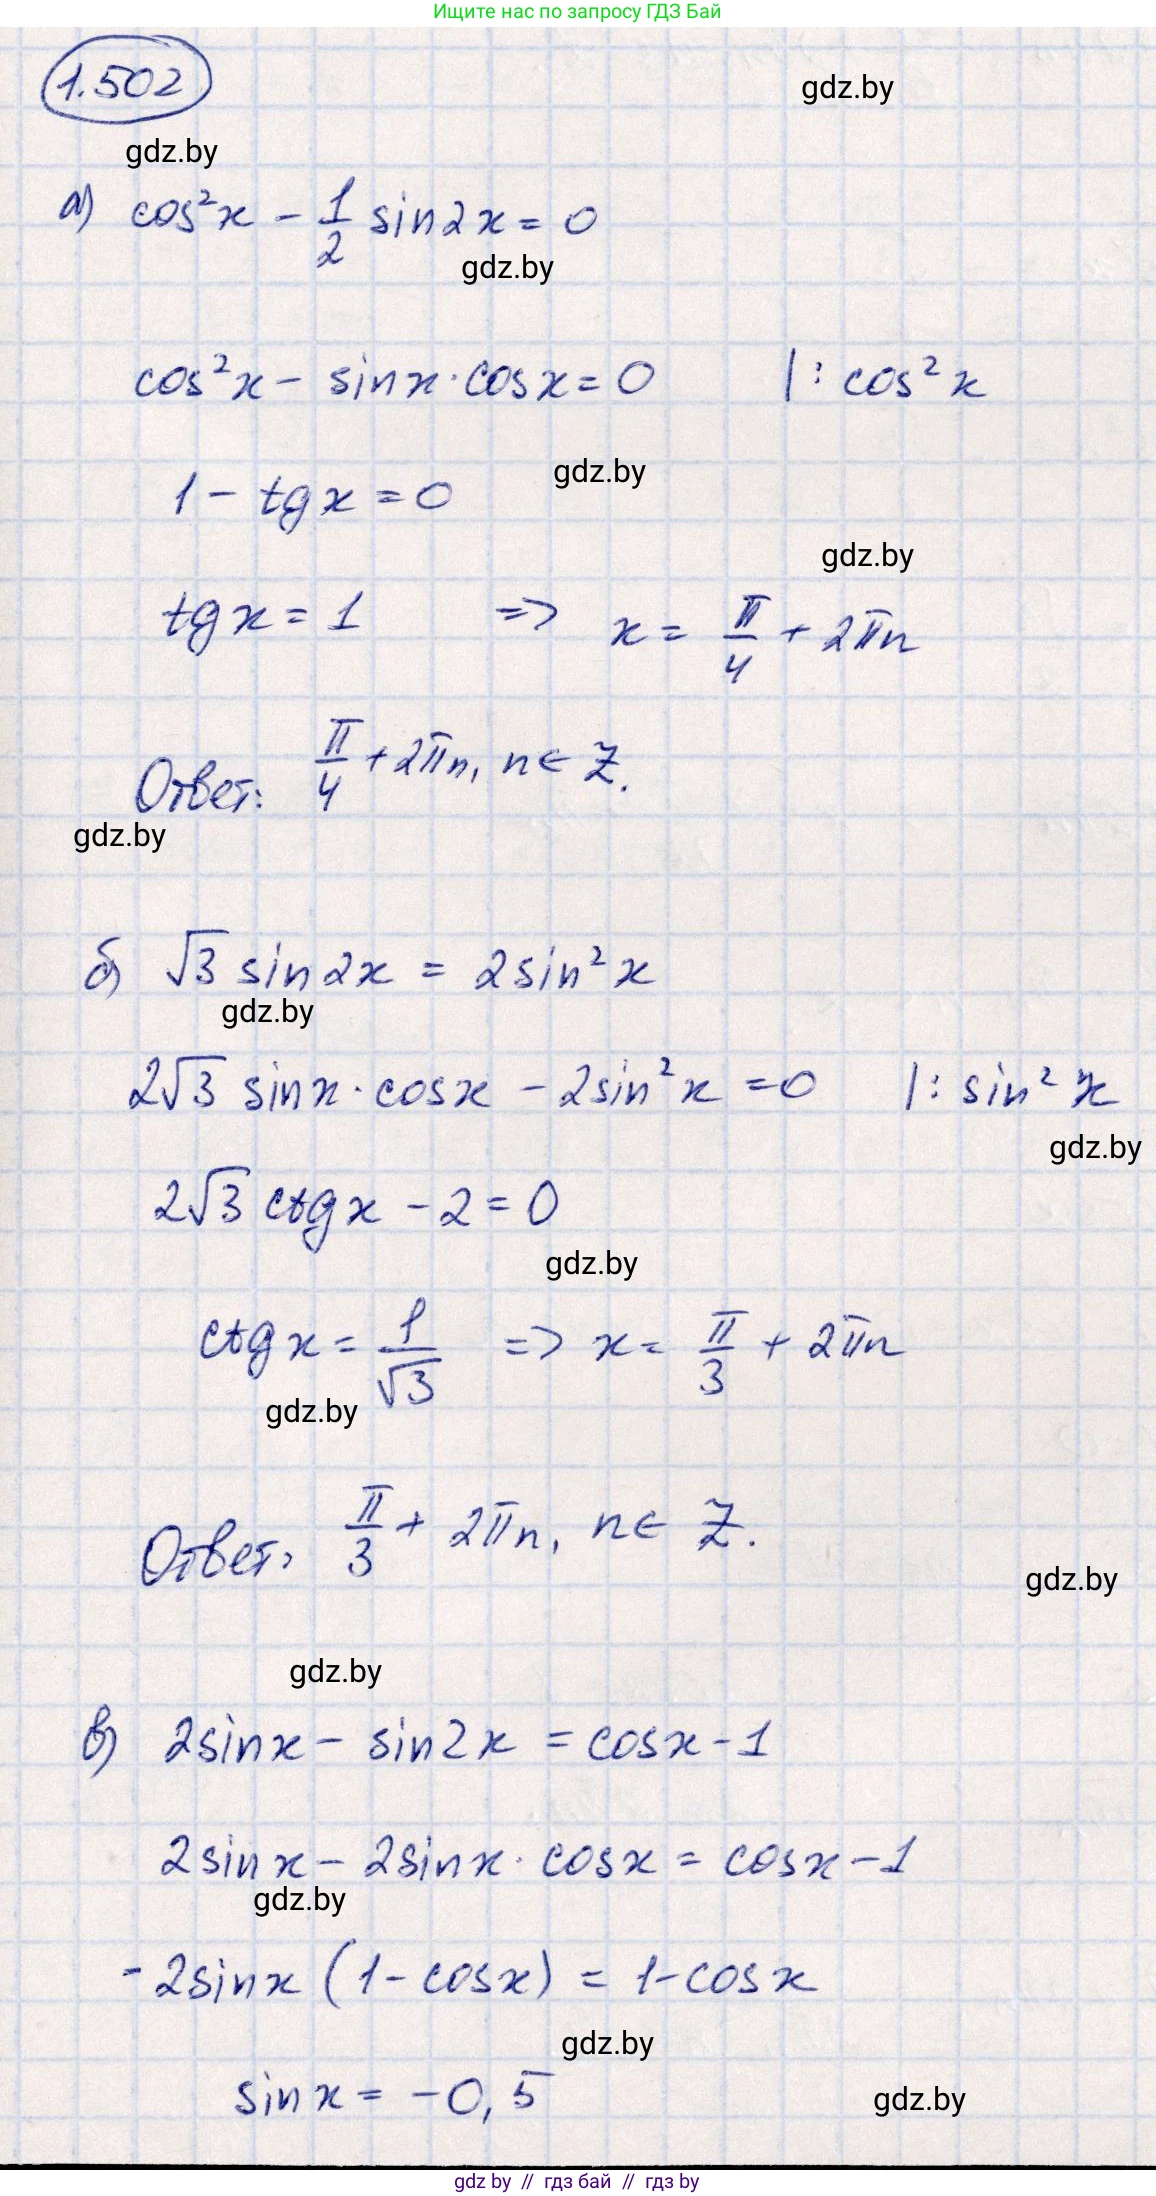 Ищите нас по запросу ГДЗ Бай
1.502
gdz.by
gdz.by
а) cos²x - 1/2 sin2x = 0
gdz.by
cos²x - sinx·cosx = 0 |: cos²x
gdz.by
1 - tgx = 0
gdz.by
tgx = 1 => x = π/4 + 2πn
Ответ: π/4 + 2πn, n∈Z.
gdz.by
б) √3 sin2x = 2sin²x
gdz.by
2√3 sinx·cosx - 2sin²x = 0 |: sin²x
gdz.by
2√3 ctgx - 2 = 0
gdz.by
ctgx = 1/√3 => x = π/3 + 2πn
gdz.by
Ответ: π/3 + 2πn, n∈Z.
gdz.by
gdz.by
в) 2sinx - sin2x = cosx - 1
2sinx - 2sinx·cosx = cosx - 1
gdz.by
-2sinx (1 - cosx) = 1 - cosx
gdz.by
sinx = -0,5
gdz.by
gdz by // гдз бай // гдз by